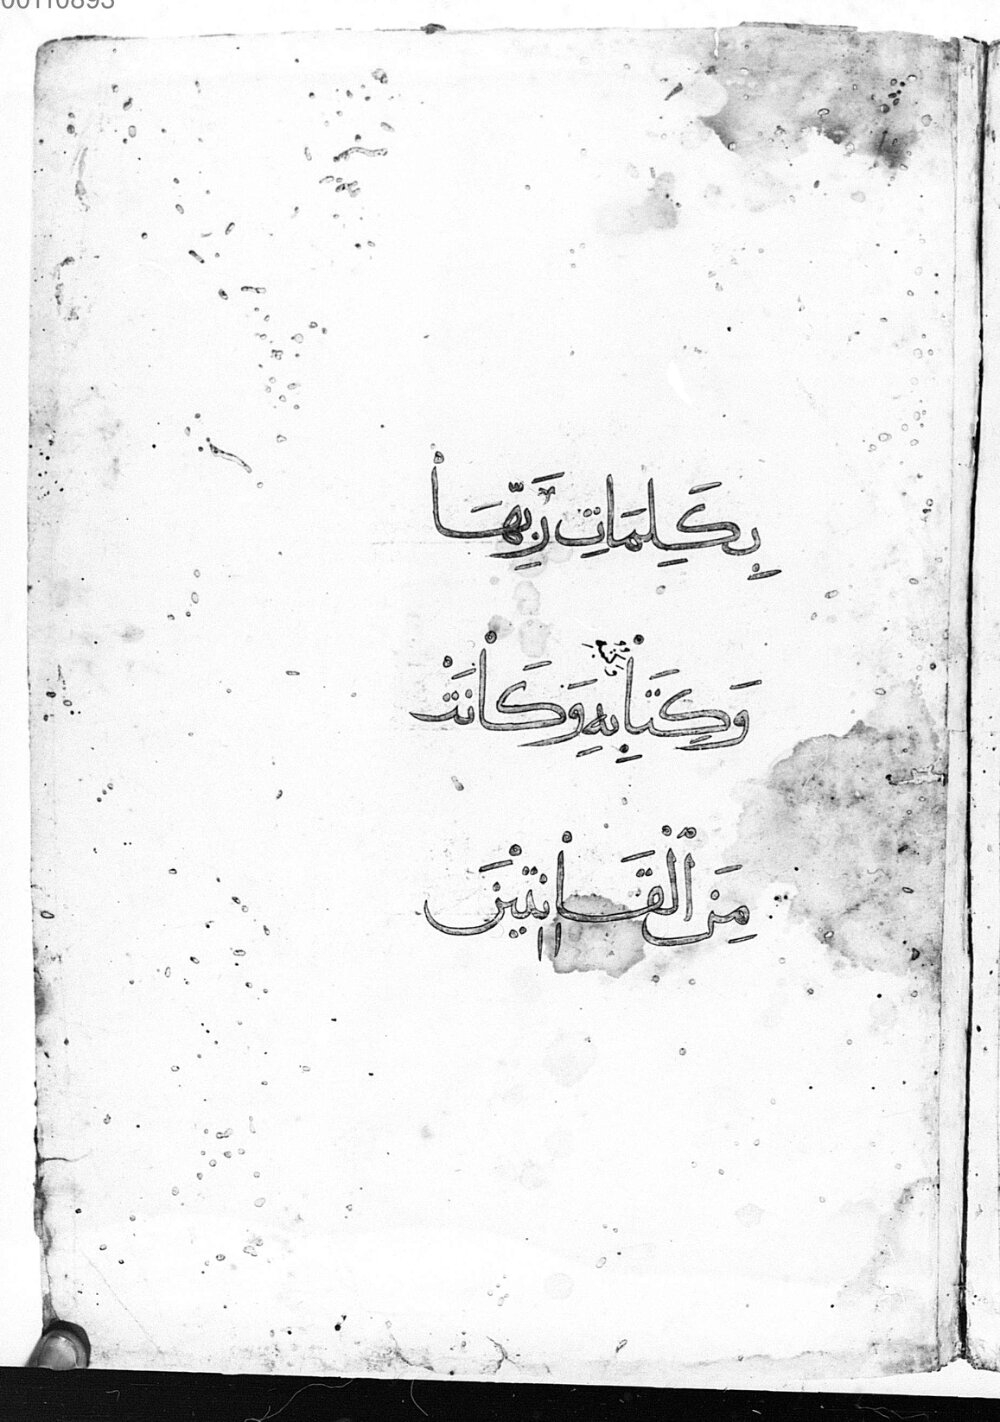 00110893
بِكَلِمَاتِ رَبِّهَا
وَكِتَابِهِ وَكَانَتْ
مِنَ ٱلْقَانِتِيْنَ